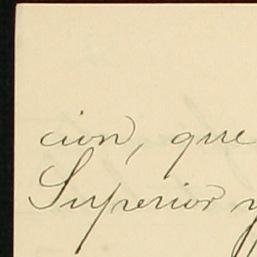 cion, que
Superior y